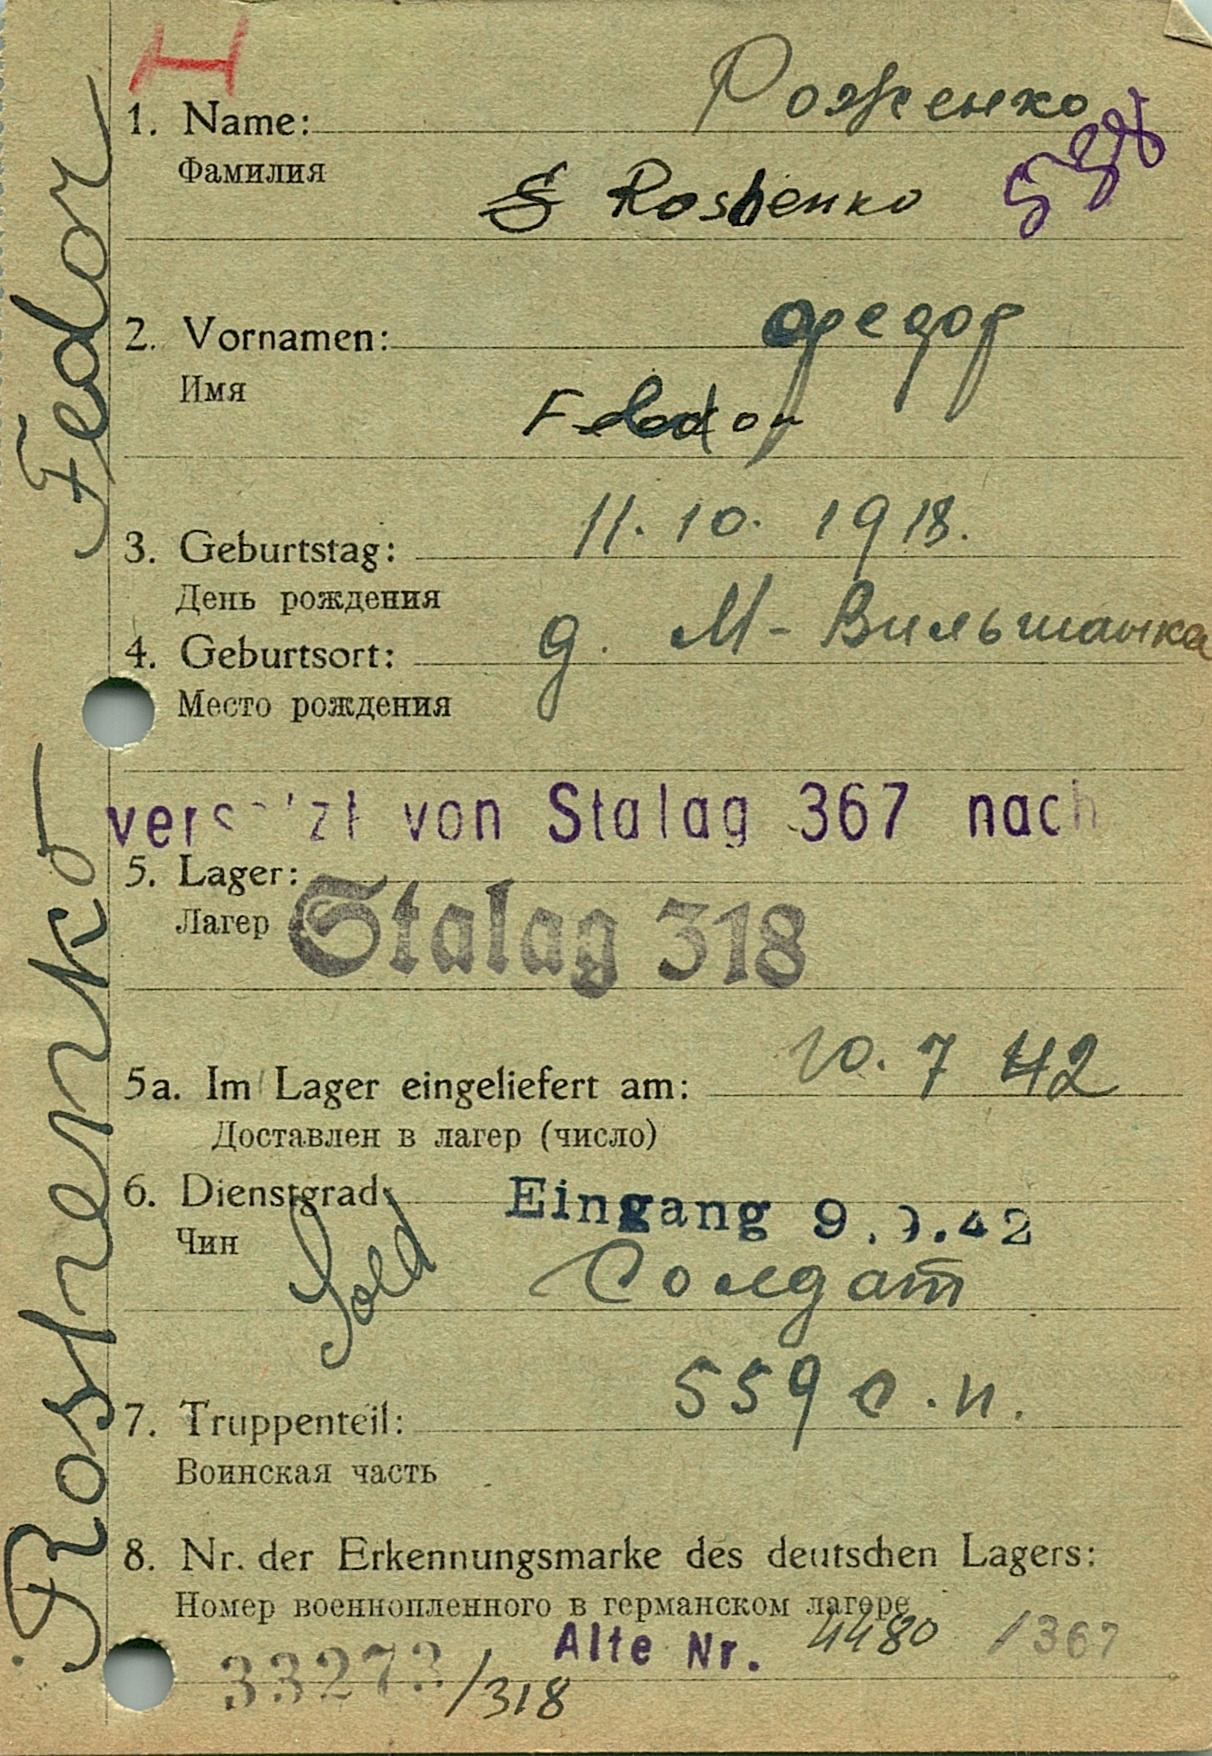 1. Name: Роженко
Фамилия
Roshenko
2. Vornamen: Федор
Имя
Fedor
3. Geburtstag: 11. 10. 1918.
День рождения
4. Geburtsort: д. М-Вильшанка
Место рождения
von Stalag 367 nach
5. Lager:
Лагер
Stalag 318
5a. Im Lager eingeliefert am: 10. 7 42
Доставлен в лагер (число)
6. Dienstgrad:
Eingang 9. .42
Чин
Sold Солдат
7. Truppenteil: 559 с.п.
Воинская часть
8. Nr. der Erkennungsmarke des deutschen Lagers:
Номер военнопленного в германском лагере
Alte Nr. 4480 /367
/318
Roshenko Fedor